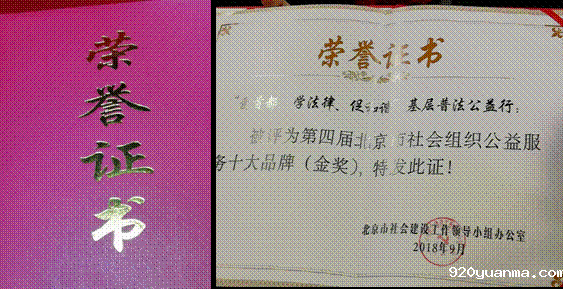 荣誉证书
荣誉证书
学法律、促和谐" 基层普法公益行:
被评为第四届北京市社会组织公益服
务十大品牌(金奖),特发此证!
北京市社会建设工作领导小组办公室
2018年9月
920yuanma.com